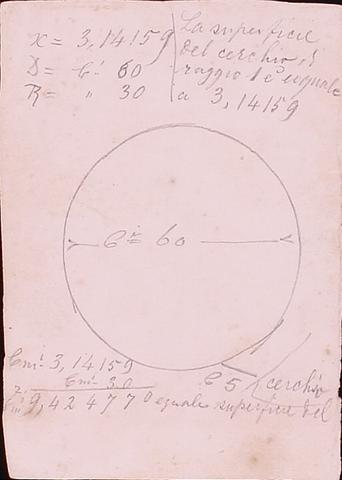 x = 3,14159
D = C.i 60
R = " 30
La superficie
del cerchio, di
raggio 1 è eguale
a 3,14159
60
Cm.i 3,14159
Cm.i 30
9,424770 eguale superficie del
cerchio